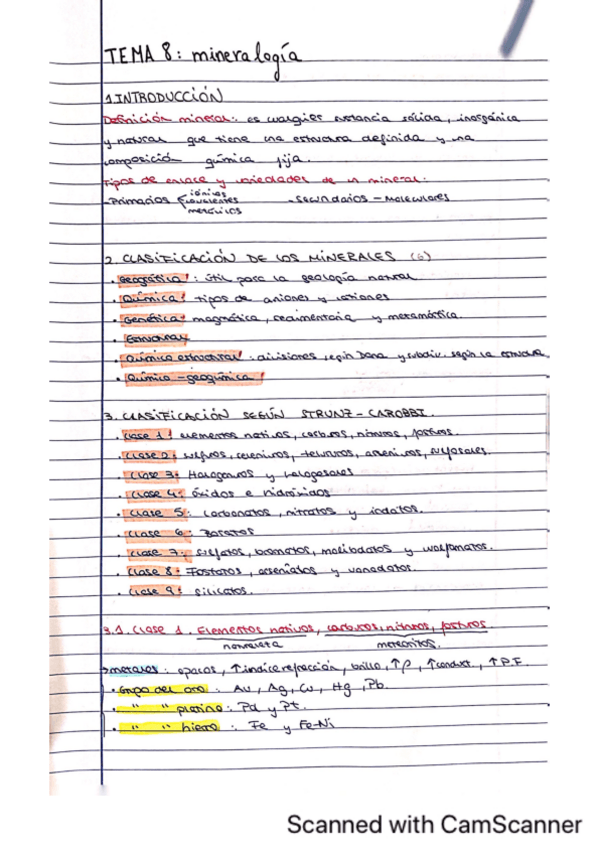 TEMA 8: mineralogía
1. INTRODUCCIÓN
Definición mineral: es cualquier sustancia sólida, inorgánica
y natural que tiene una estructura definida y una
composición química fija.
Tipos de enlace y variedades de un mineral:
- Primarios { iónicos covalentes metálicos - Secundarios - Moleculares
2. CLASIFICACIÓN DE LOS MINERALES (6)
· Geográfica: útil para la geología natural
· Química: tipos de aniones y cationes
· Genética: magmática, sedimentaria y metamórfica.
· Estructural
· Químico estructural: divisiones según Dana y subdiv. según la estructura
· Químico-geoquímica
3. CLASIFICACIÓN SEGÚN STRUNZ-CAROBBI.
· Clase 1: elementos nativos, carburos, nitruros, fosfuros.
· Clase 2: sulfuros, seleniuros, telururos, arseniuros, sulfosales.
· Clase 3: Halogenuros y halogesales
· Clase 4: óxidos e hidróxidos
· Clase 5: carbonatos, nitratos y iodatos.
· Clase 6: Boratos
· Clase 7: sulfatos, cromatos, molibdatos y wolframatos.
· Clase 8: Fosfatos, arseniatos y vanadatos.
· Clase 9: silicatos.
3.1. Clase 1. Elementos nativos, carburos, nitruros, fosfuros.
naturaleza meteoritos.
→ metales: opacos, ↑ índice refracción, brillo, ↑ρ, ↑conduct., ↑P.F
· Grupo del oro: Au, Ag, Cu, Hg, Pb.
· " " platino: Pd y Pt.
· " " hierro: Fe y Fe-Ni
Scanned with CamScanner